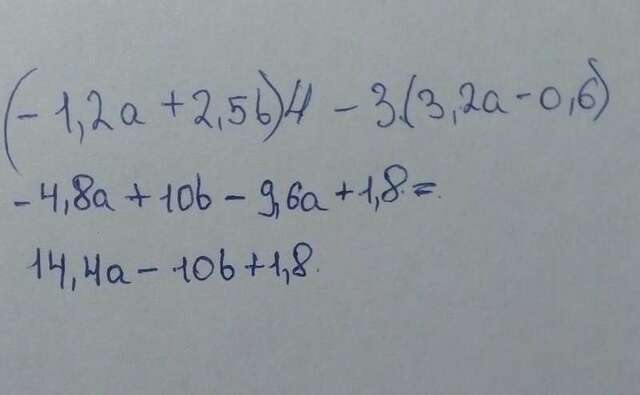 (-1,2a + 2,5b)4 - 3·(3,2a - 0,6)
-4,8a + 10b - 9,6a + 1,8 =
14,4a - 10b + 1,8